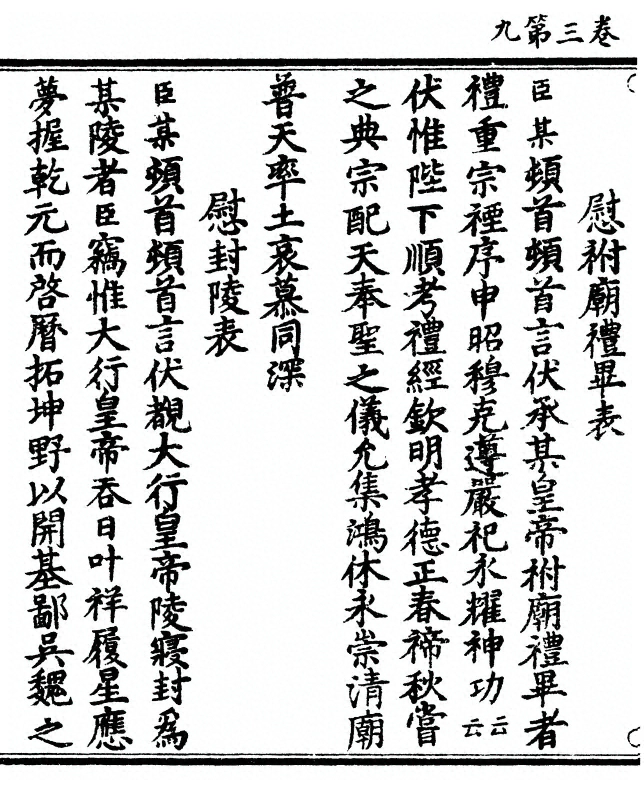 卷三第九
慰祔廟禮畢表
臣某頓首頓首言伏承某皇帝祔廟禮畢者
禮重宗禋序申昭穆克遵嚴祀永耀神功云云
伏惟陛下順考禮經欽明孝德正春禘秋嘗
之典宗配天奉聖之儀允集鴻休永崇清廟
普天率土哀慕同深
慰封陵表
臣某頓首頓首言伏覩大行皇帝陵寢封為
某陵者臣竊惟大行皇帝吞日叶祥履星應
夢握乾元而啓曆拓坤野以開基鄙吳魏之